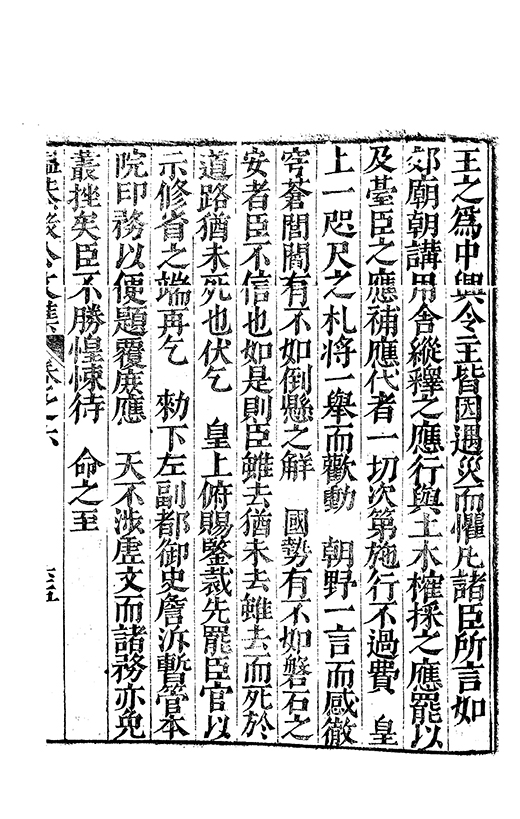 王之爲中興令主皆因遇災而懼凡諸臣所言如
郊廟朝講用舍縱釋之應行與土木榷採之應罷以
及臺臣之應補應代者一切次第施行不過費　皇
上一咫尺之札將一舉而歡動　朝野一言而感徹
穹蒼閭閻有不如倒懸之解　國勢有不如磐石之
安者臣不信也如是則臣雖去猶未去雖去而死於
道路猶未死也伏乞　皇上俯賜鑒裁先罷臣官以
示修省之端再乞　勑下左副都御史詹沂暫管本
院印務以便題覆庶應　天不涉虛文而諸務亦免
叢挫矣臣不勝惶悚待　命之至
公文集　卷之六